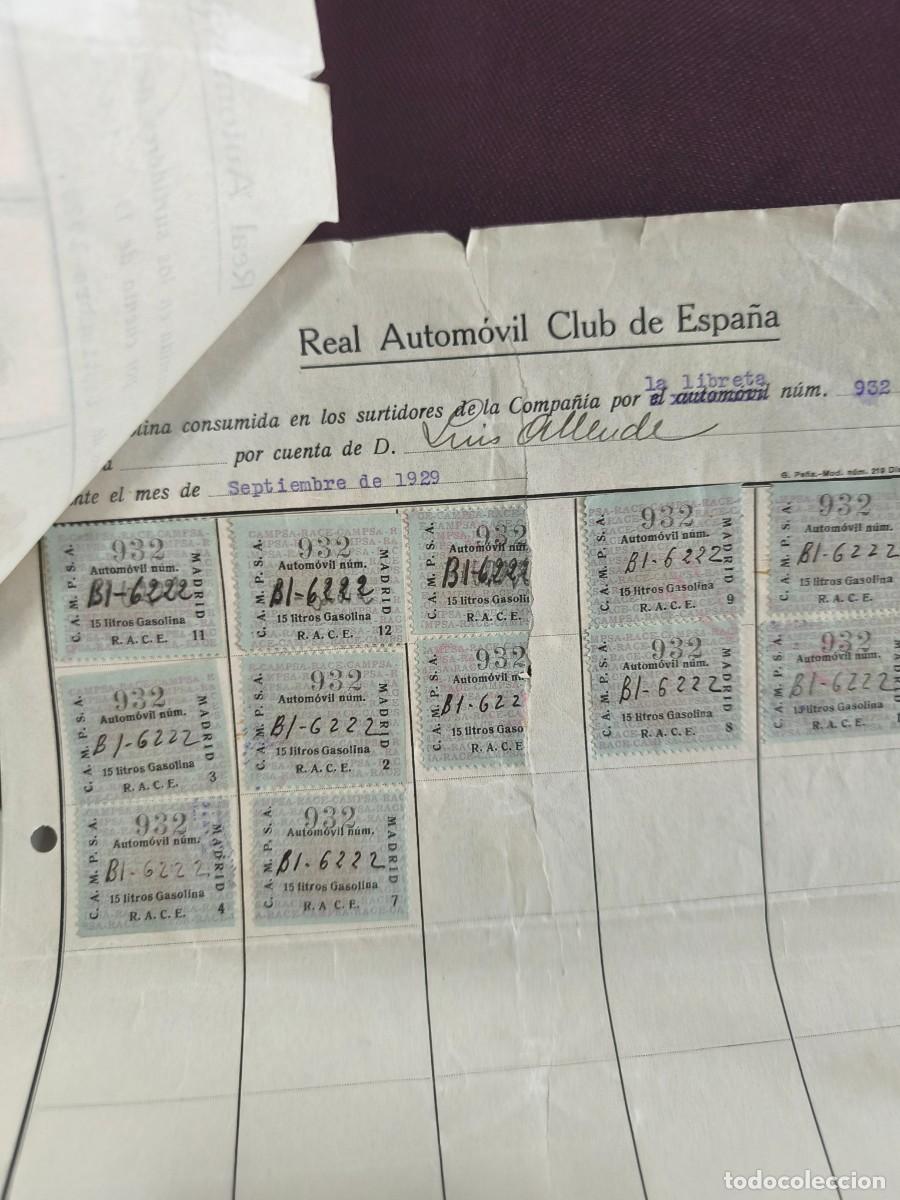 Real Automóvil Club de España
la libreta
consumida en los surtidores de la Compañía por el automóvil núm. 932
por cuenta de D. Luis Allende
el mes de Septiembre de 1929
G. Peña.-Mod. núm. 219
C. A. M. P. S. A.
932
Automóvil núm.
BI-6222
15 litros Gasolina
R. A. C. E.
MADRID
11
C. A. M. P. S. A.
932
Automóvil núm.
BI-6222
15 litros Gasolina
R. A. C. E.
MADRID
12
C. A. M. P. S. A.
932
Automóvil núm.
BI-6222
15 litros
R. A. C. E.
C. A. M. P. S. A.
932
Automóvil núm.
BI-6222
15 litros Gasolina
R. A. C. E.
MADRID
9
C. A. M. P. S. A.
932
Automóvil núm.
BI-6222
15 litros Gasolina
R. A. C. E.
C. A. M. P. S. A.
932
Automóvil núm.
BI-6222
15 litros Gasolina
R. A. C. E.
MADRID
3
C. A. M. P. S. A.
932
Automóvil núm.
BI-6222
15 litros Gasolina
R. A. C. E.
MADRID
2
C. A. M. P. S. A.
932
Automóvil
BI-622
15 litros Gaso
R. A. C. E
C. A. M. P. S. A.
932
Automóvil núm.
BI-6222
15 litros Gasolina
R. A. C. E.
MADRID
8
C. A. M. P. S. A.
932
Automóvil núm.
BI-6222
15 litros Gasolina
R. A. C. E.
C. A. M. P. S. A.
932
Automóvil núm.
BI-6222
15 litros Gasolina
R. A. C. E.
MADRID
4
C. A. M. P. S. A.
932
Automóvil núm.
BI-6222
15 litros Gasolina
R. A. C. E.
MADRID
7
todocoleccion